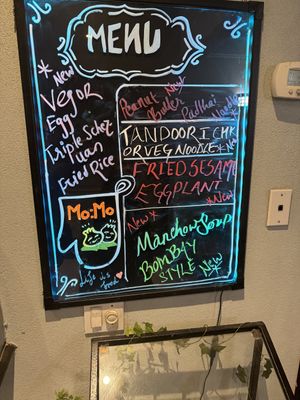 MENU
*New
Veg or
Egg
Triple Schez
Tuan
Fried Rice
Mo:Mo
Peanut New
Butter Padthai
Noodle
TANDOORI CHK
OR VEG NOODLE *New
FRIED SESAME
EGGPLANT
*New
New*
Manchow Soup
BOMBAY
STYLE New*